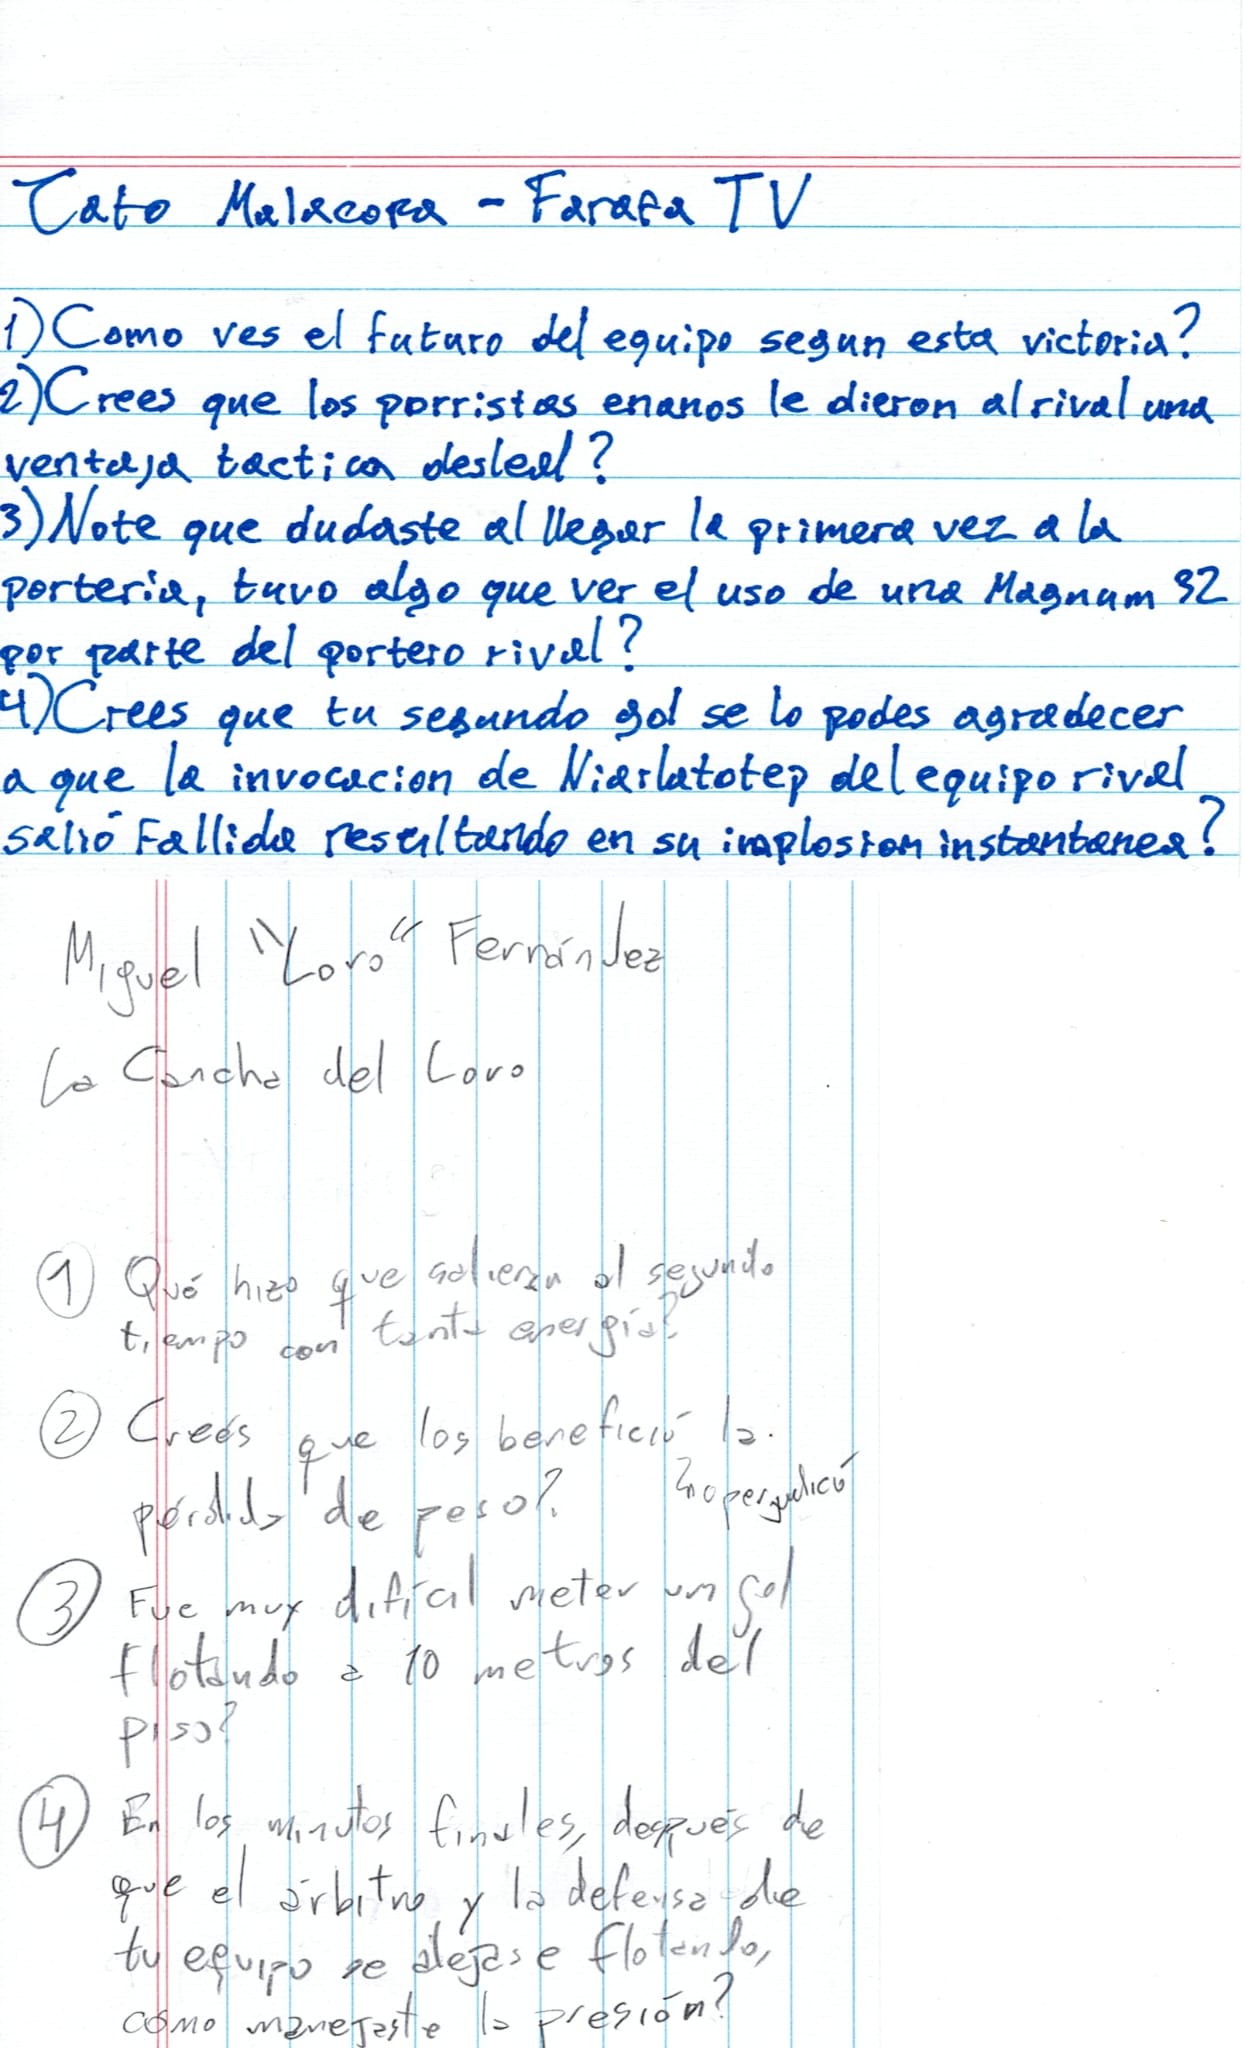 Tato Malacopa - Farafa TV
1) Como ves el futuro del equipo segun esta victoria?
2) Crees que los porristas enanos le dieron al rival una
ventaja tactica desleal?
3) Note que dudaste al llegar la primera vez a la
porteria, tuvo algo que ver el uso de una Magnum 32
por parte del portero rival?
4) Crees que tu segundo gol se lo podes agradecer
a que la invocacion de Niarlatotep del equipo rival
salió fallida resultando en su implosion instantanea?
Miguel "Loro" Fernández
La Cancha del Loro
1 Qué hizo que salieran al segundo
tiempo con tanta energía?
2 Creés que los benefició la
pérdida de peso? no perjudicó
3 Fue muy difícil meter un gol
flotando a 10 metros del
piso?
4 En los minutos finales, después de
que el árbitro y la defensa de
tu equipo se alejase flotando,
cómo manejaste la presión?